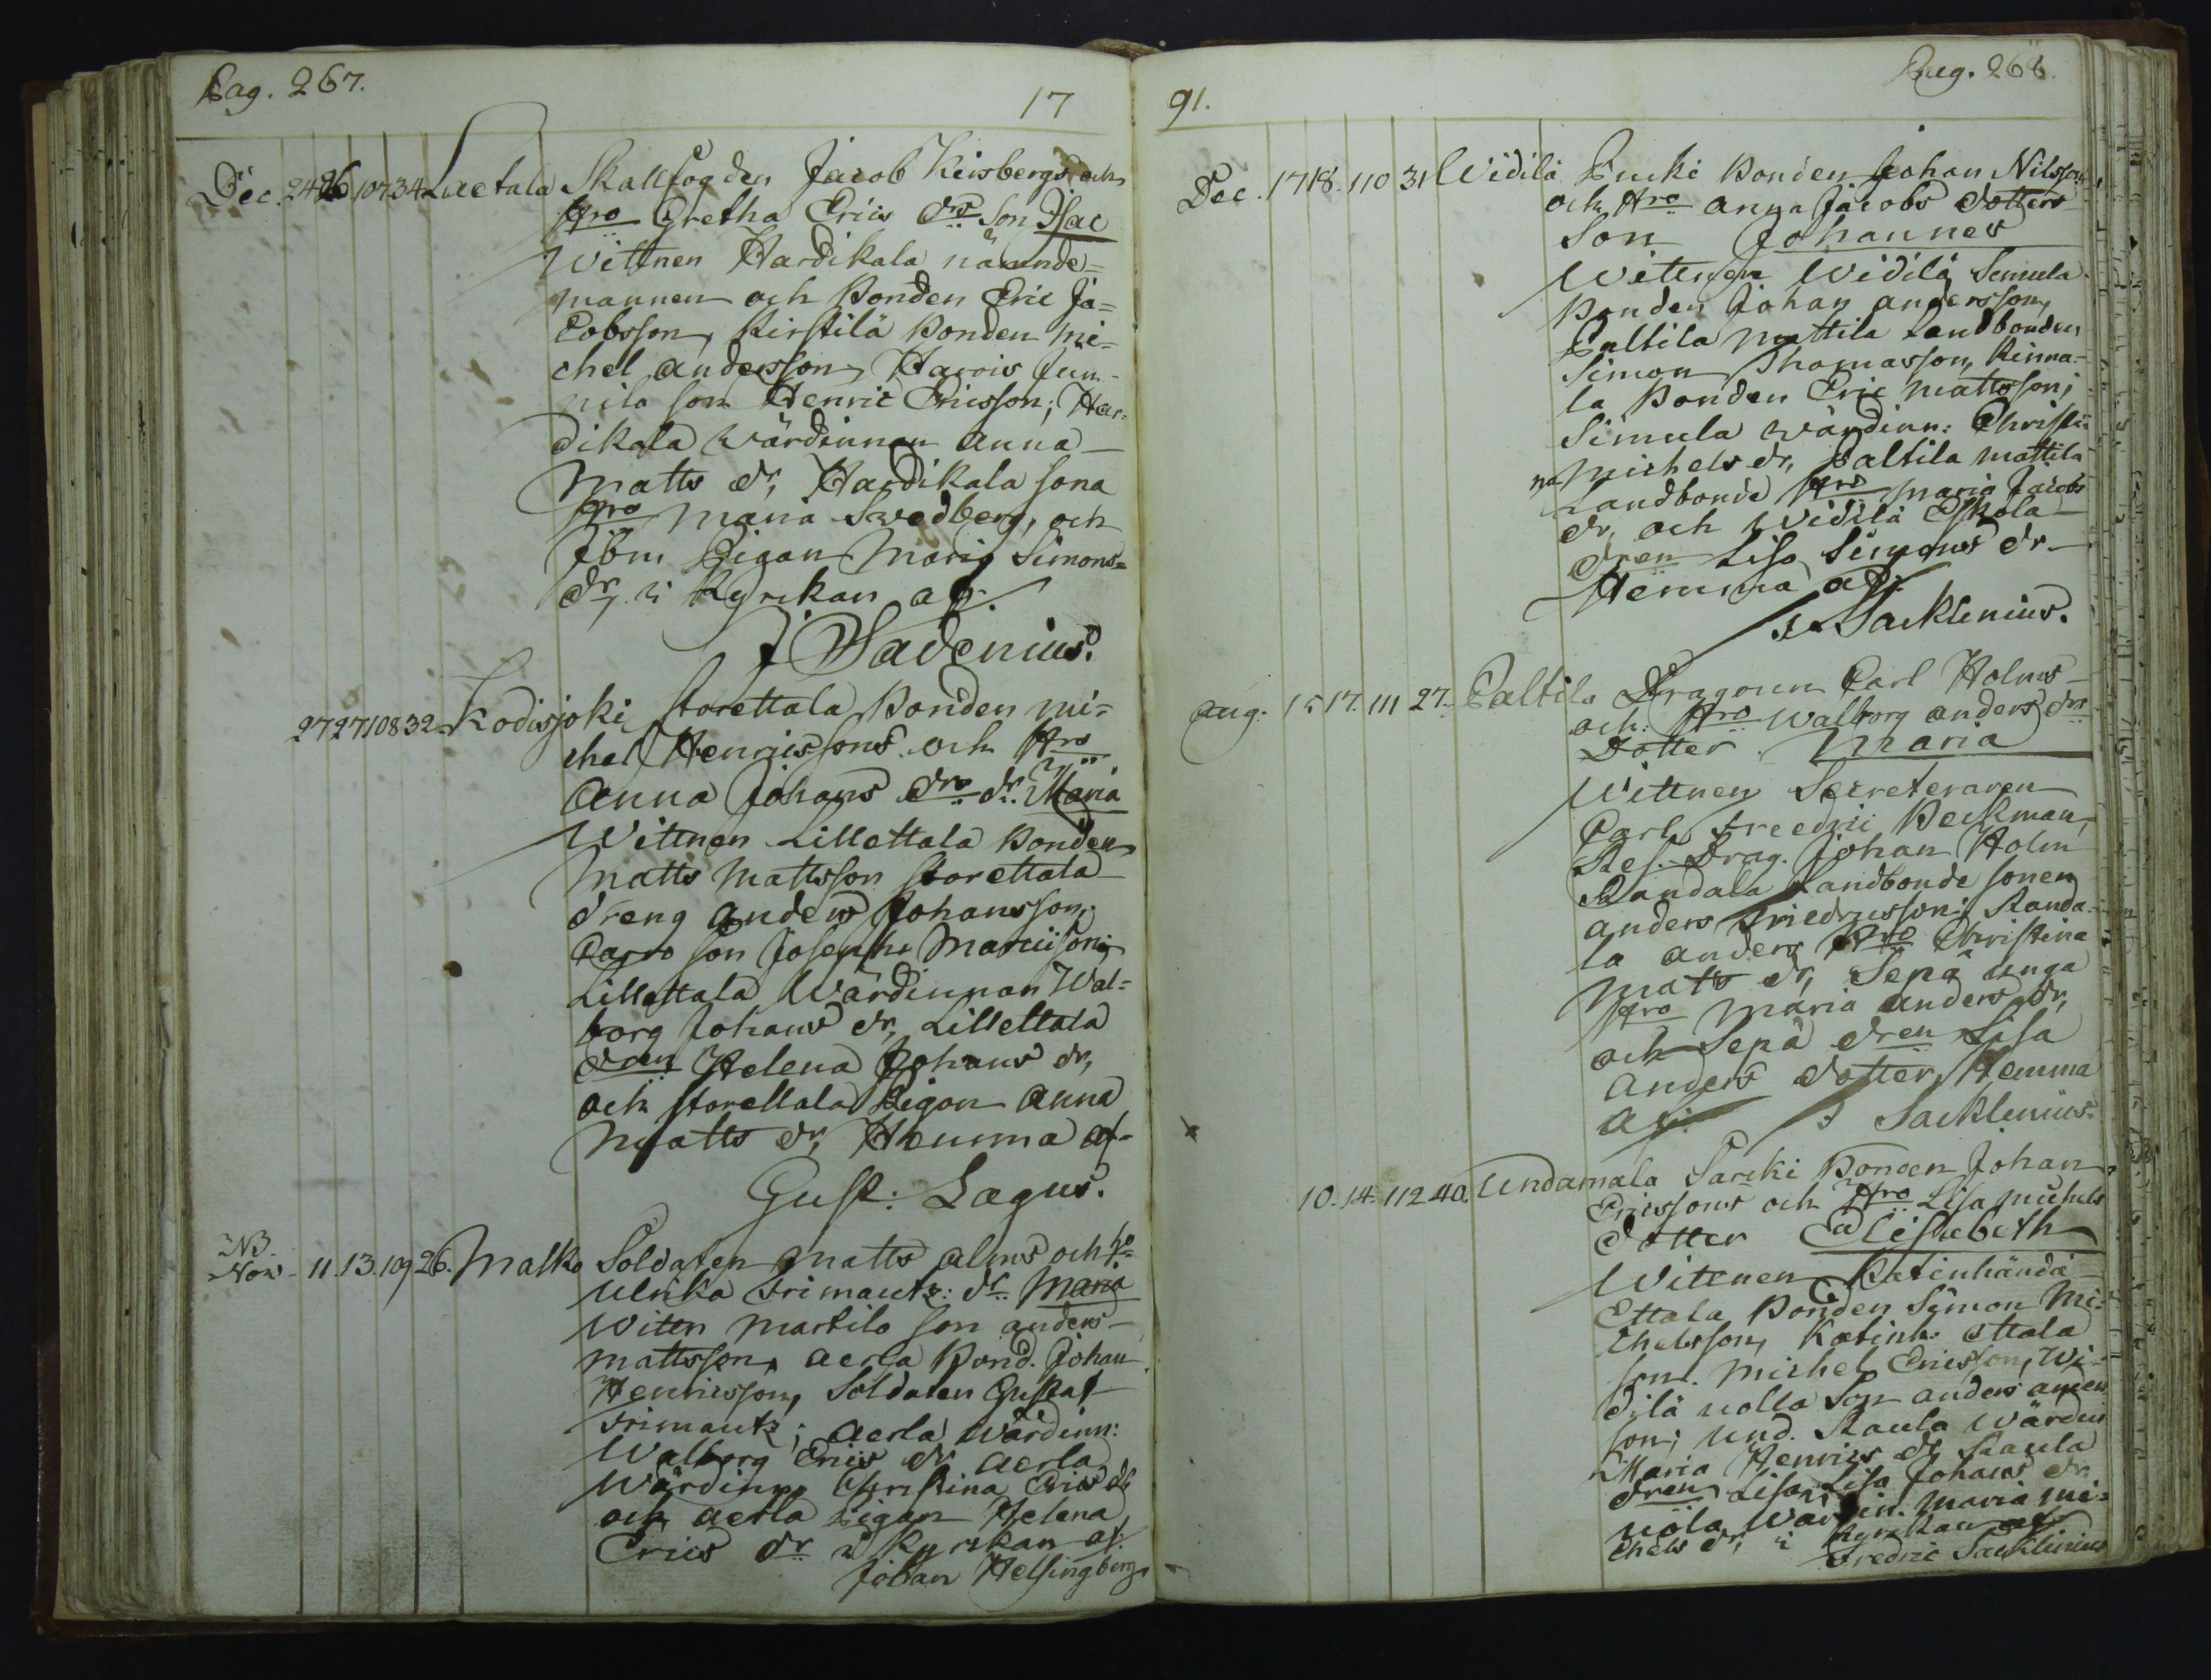 Pag. 267.
17
Dec. 24 26 107 34 Laetala Skallfogden Jacob Keisbergs och
Hro Gretha Erics dro Son Isac
Wittnen Hardikala nämnde=
mannen och Bonden Eric Ja=
cobsson, Kirstilä Bonden Mi=
chel Andersson, Harois Jun-
nila son Henric Ericsson; Har=
dikala wärdinnan Anna
Matts dr, Hardikala sona
Hro Maria Swedberg, och
Ibm Pigan Maria Simons=
dr, i Kyrckan af.
J Wadenius.
27 27 108 32 Kodisjoki Storettala Bonden Mi=
chel Henricssons och Hro
Anna Johans dro dr. Maria
Wittnen Lillettala Bonden
Matts Mattsson Storettala
dreng Anders Johansson,
Parro son Joseph Marcisson;
Lillettala Wärdinnan Wal=
borg Johans dr, Lillettala
dren Helena Johans dr,
och Storettala Pigan Anna
Matts dr, Hemma af
Gust: Lagus.
NB.
Nov. 11. 13. 109 26. Malko Soldaten Matts Alms och Ho
Ulrika Frimants: dr. Maria
Wittn Martila son Anders
Mattsson, Aerla Bond. Johan
Henricsson, Soldaten Gustaf
Frimants; Aerla Wärdinn:
Walborg Erics dr Aerla
Wärdinn Christina Erics dr
och Aerla Pigan Helena
Erics dr i Kyrckan af:
Johan Helsingberg.
91.
Pag. 268.
Dec. 17 18. 110 31 Widilä Pucki Bonden Johan Nilssons
och Hro Anna Jacobs dotters
Son Johannes
Wittnen Widilä Simula
Bonden Johan Andersson,
Paltila Mattila Landbonden
Simon Thomasson, Kinna-
la Bonden Eric Mattsson;
Simula wärdinn: Christi-
na Michels dr, Paltila Mattila
Landbonde Hro Maria Jacobs
dr, och Widilä Eskola
dren Lisa Simons dr
Hemma af.
J. Sacklinius.
Aug: 15 17. 111 27. Paltila Dragoun Carl Holms
och Hro Walborg Anders drs
Dotter Maria
Wittnen Secreteraren
Carl Freedric Beckman,
Res. Drag. Johan Holm
Randala Landbonde sonen
Anders Friedricsson; Randa-
la Anders Hro Christina
Matts dr, Sepä Unga
Hro Maria Anders dr,
och Sepä dren Lisa
Anders dotter, Hemma
af: J Sacklinius.
10. 14. 112 40. Undamala Särcki Bonden Johan
Ericssons och Hro Lisa Michels
dotter Elisabeth
Wittnen Katinhända
Ettala Bonden Simon Mi=
chelsson, Katinh: Ettala
son. Michel Ericsson, Wi=
dilä Nolla Son Anders Anders
son; Und. Raula Wärdin
Maria Henrics dr Raula
dren Lisa Lisa Johans dr
Nola Wärdin. Maria Mi=
chels dr, i Kyrckan af
Fredric Sacklinius